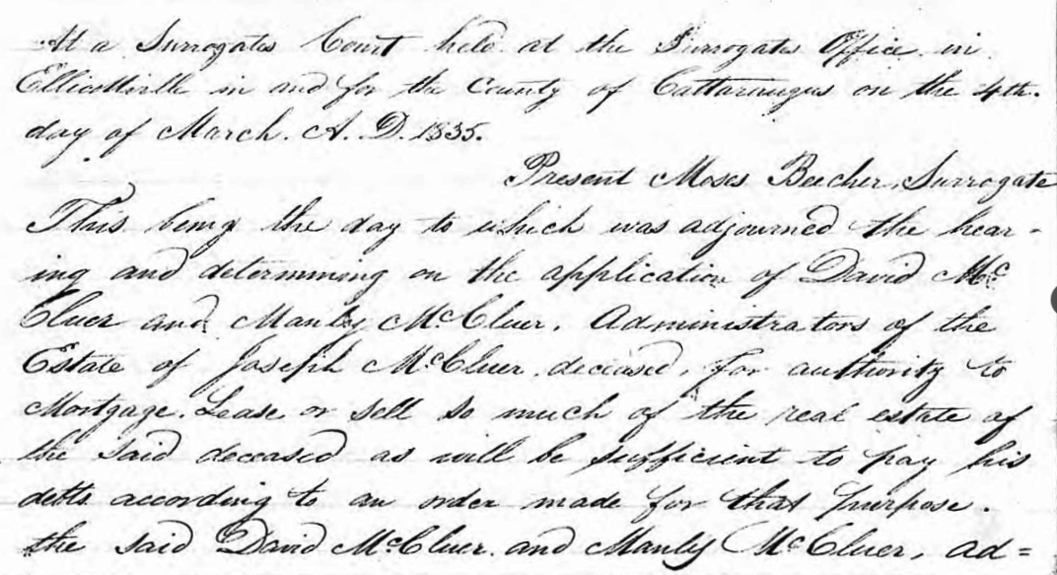 At a Surrogates Court held at the Surrogates Office in
Ellicottville in and for the County of Cattaraugus on the 4th.
day of March. A. D. 1835.
Present Moses Beecher, Surrogate
This being the day to which was adjourned the hear-
ing and determining on the application of David Mc
Cluer and Manly McCluer, Administrators of the
Estate of Joseph McCluer, deceased, for authority to
Mortgage. Lease or sell so much of the real estate of
the said deceased as will be sufficient to pay his
debts according to an order made for that purpose.
the said David McCluer. and Manly McCluer, ad=